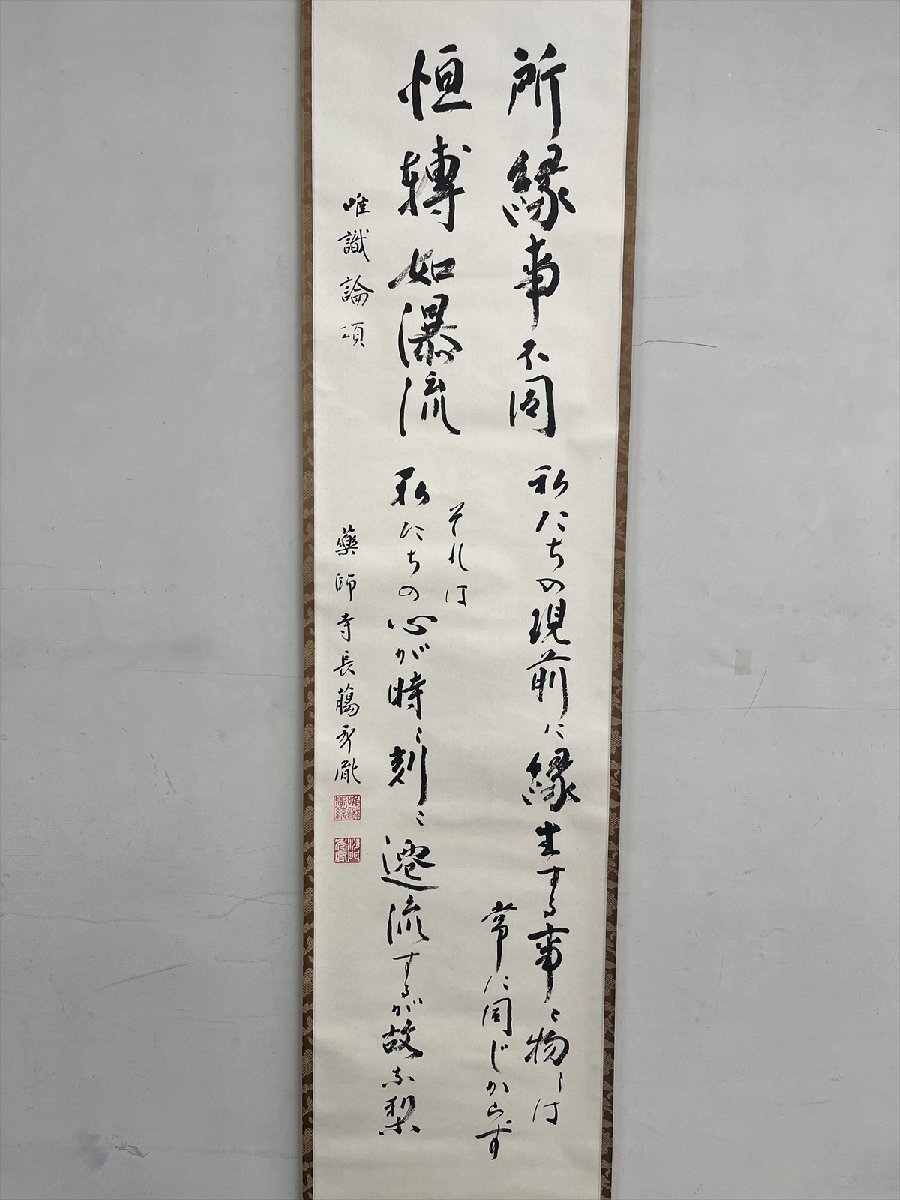 所縁事不同
私たちの現前に縁生する事々物々は
常に同じからず
恒轉如瀑流
それは
私たちの心が時々刻々遷流するが故な梨
唯識論頌
薬師寺長臈